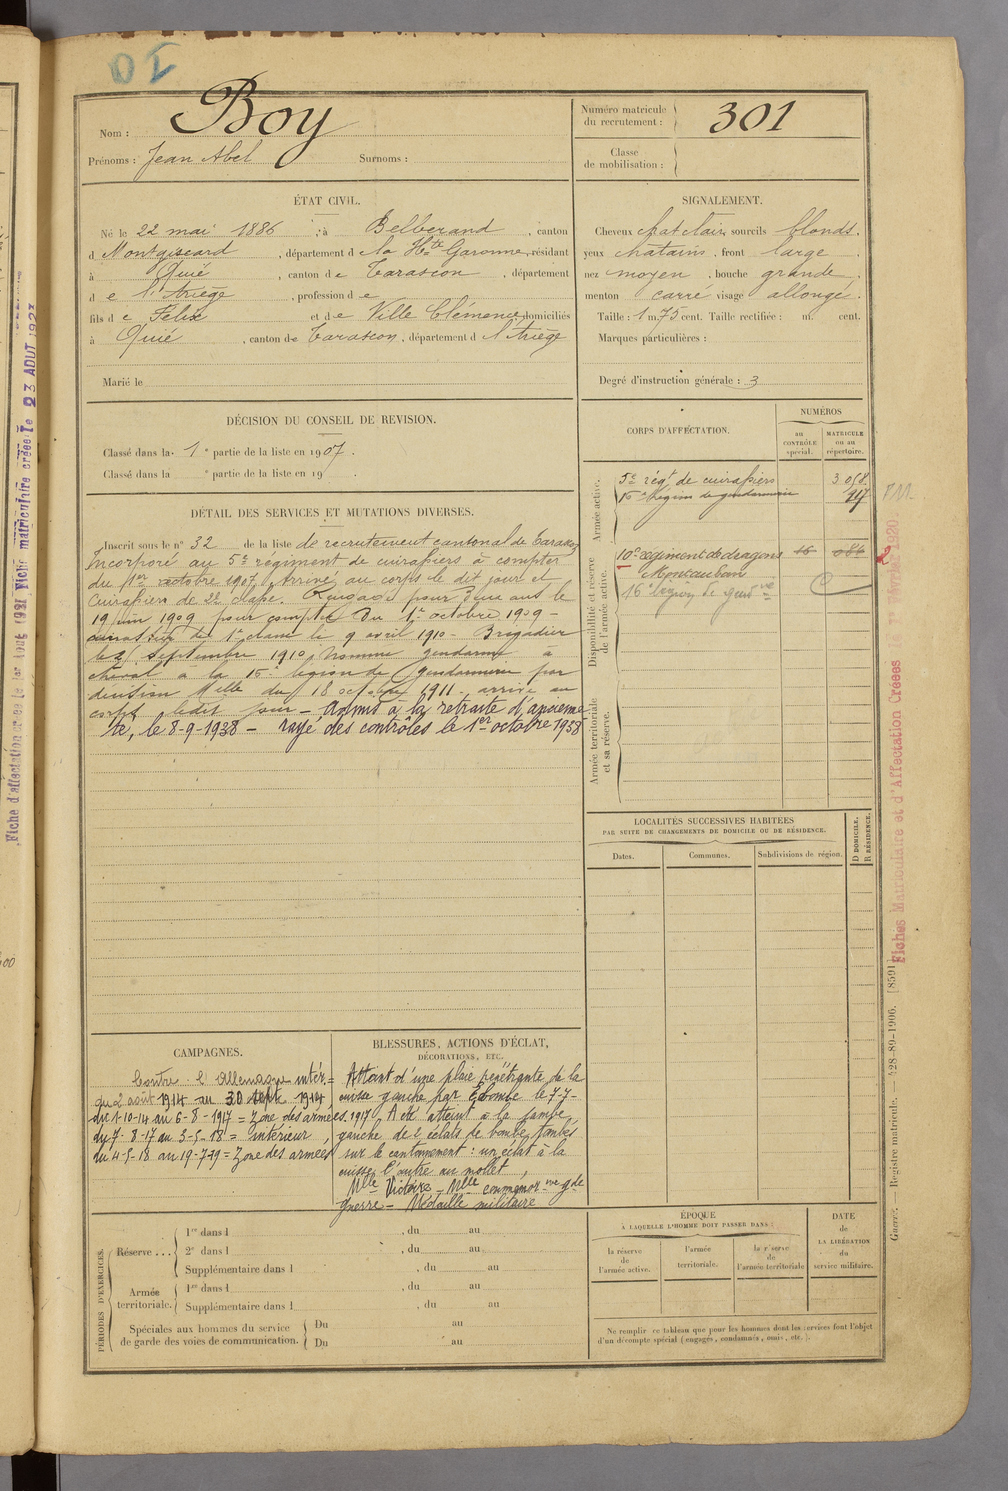 OI
Nom : Boy
Prénoms : Jean Abel Surnoms :
Numéro matricule
du recrutement : 301
Classe
de mobilisation :
ÉTAT CIVIL.
Né le 22 mai 1886 à Belberaud , canton
d Montgiscard , département de la Hte Garonne, résidant
à Quié , canton de Tarascon , département
de l'Ariège , profession de
fils de Félix et de Ville Clémence domiciliés
à Quié , canton de Tarascon , département d l'Ariège
Marié le
SIGNALEMENT.
Cheveux chat clairs sourcils blonds.
yeux châtains , front large ,
nez moyen , bouche grande ,
menton carré visage allongé.
Taille : 1 m. 75 cent. Taille rectifiée : m. cent.
Marques particulières :
Degré d'instruction générale : 3
DÉCISION DU CONSEIL DE REVISION.
Classé dans la 1e partie de la liste en 1907.
Classé dans la e partie de la liste en 19 .
DÉTAIL DES SERVICES ET MUTATIONS DIVERSES.
Inscrit sous le n° 32 de la liste de recrutement cantonal de Tarascon
Incorporé au 5e régiment de cuirassiers à compter
du 1er octobre 1907, Arrivé au corps le dit jour et
Cuirassier de 2e classe. Rengagé pour deux ans le
19 juin 1909 pour compter du 1er octobre 1909 -
cuirassier de 1e classe le 9 avril 1910 - Brigadier
le septembre 1910, nommé gendarme à
cheval à la 15e légion de Gendarmerie par
décision Mlle du 18 octobre 1911 - arrivé au
corps ledit jour - Admis à la retraite d'ancienne
té, le 8-9-1938 - rayé des contrôles le 1er octobre 1938
CORPS D'AFFECTATION.
NUMÉROS
au
CONTRÔLE
spécial.
MATRICULE
ou au
répertoire.
Armée active.
5e régt de cuirassiers 3 058
15e légion de gendarmerie 217
Disponibilité et réserve
de l'armée active.
10e régiment de dragons 16 086
Montauban
16 légion de gend
Armée territoriale
et sa réserve.
LOCALITÉS SUCCESSIVES HABITÉES
PAR SUITE DE CHANGEMENTS DE DOMICILE OU DE RÉSIDENCE.
Dates. Communes. Subdivisions de région.
D DOMICILE.
R RÉSIDENCE.
CAMPAGNES.
Contre l'Allemagne intér =
du 2 août 1914 au 30 sept 1914
du 1-10-14 au 6-8-1917 = Zone des armées
du 7-8-17 au 3-5-18 = intérieur ,
du 4-5-18 au 19-7-19 = Zone des armées
BLESSURES, ACTIONS D'ÉCLAT,
DÉCORATIONS, ETC.
Atteint d'une plaie pénétrante de la
cuisse gauche par E bombe le 7-7-
1917, A été atteint à la jambe
gauche de 2 éclats de bombe tombés
sur le cantonnement : un éclat à la
cuisse l'autre au mollet ,
Mlle Victoire - Mlle commémor ve gde
guerre - Médaille militaire
PÉRIODES D'EXERCICES.
Réserve ...
1re dans l , du au
2e dans l , du au
Supplémentaire dans l , du au
Armée
territoriale.
1re dans l , du au
Supplémentaire dans l , du au
Spéciales aux hommes du service
de garde des voies de communication.
Du au
Du au
ÉPOQUE
À LAQUELLE L'HOMME DOIT PASSER DANS :
la réserve
de
l'armée active.
l'armée
territoriale.
la réserve
de
l'armée territoriale
DATE
de
LA LIBÉRATION
du
service militaire.
Ne remplir ce tableau que pour les hommes dont les services font l'objet
d'un décompte spécial (engagés, condamnés, omis, etc.).
Guerre. — Registre matricule. — 428-89-1906. [8591]
Fiches Matriculaire et d'Affectation Créées 1920
Fiche d'affectation créée le 1er Août 1931 Fiche matriculaire créée le 23 AOUT 1927